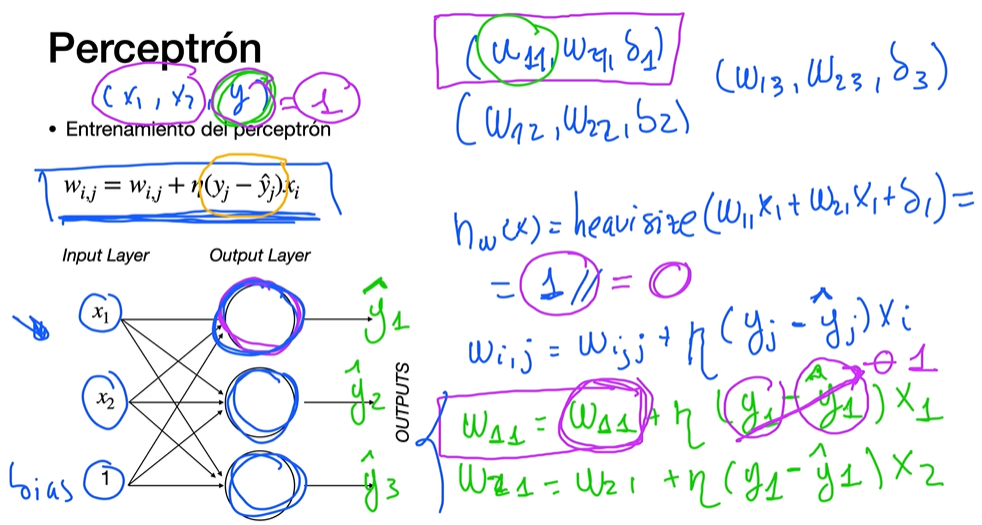 Perceptrón
(x₁, x₂), y = 1
• Entrenamiento del perceptrón
w_{i,j} = w_{i,j} + η(y_j − ŷ_j)x_i
Input Layer Output Layer
x₁ ŷ1
x₂ ŷ2
bias 1 ŷ3
OUTPUTS
(w11, w21, b1)
(w12, w22, b2)
(w13, w23, b3)
h_w(x) = heavisize(w11x1 + w21x1 + b1) =
= 1 // = 0
w_{i,j} = w_{i,j} + η(y_j − ŷ_j)x_i
w11 = w11 + η(y1 − ŷ1)x1
0 1
w21 = w21 + η(y1 − ŷ1)x2